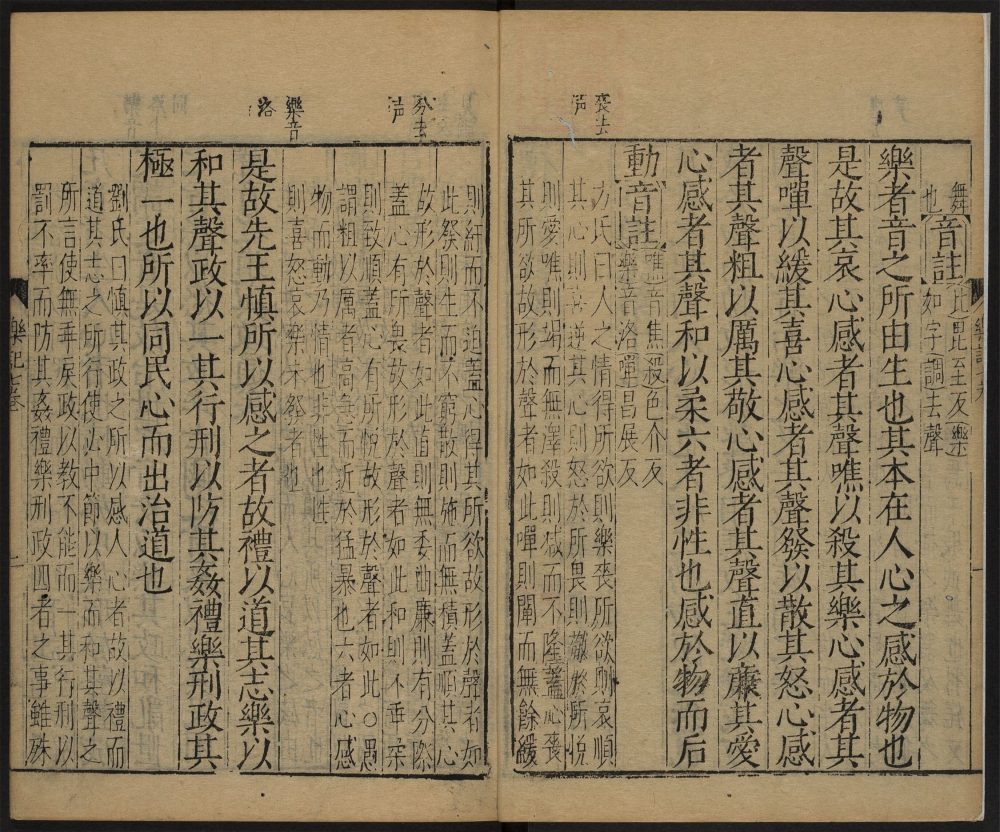 舞
也音註比毘至反樂
如字調去聲
樂者音之所由生也其本在人心之感於物也
是故其哀心感者其聲噍以殺其樂心感者其
聲嘽以緩其喜心感者其聲發以散其怒心感
者其聲粗以厲其敬心感者其聲直以廉其愛
心感者其聲和以柔六者非性也感於物而后
動音註噍音焦殺色介反
樂音洛嘽昌展反
方氏曰人之情得所欲則樂喪所欲則哀順
其心則喜逆其心則怒於所畏則敬於所悅
則愛噍則竭而無澤殺則减而不隆蓋心喪
其所欲故形於聲者如此嘽則闡而無餘緩
喪去
声
則紆而不迫蓋心得其所欲故形於聲者如
此發則生而不窮散則施而無積蓋順其心
故形於聲者如此直則無委曲廉則有分際
蓋心有所畏故形於聲者如此和則不乖柔
則致順蓋心有所悅故形於聲者如此○愚
謂粗以厲者高急而近於猛暴也六者心感
物而動乃情也非性也性
則喜怒哀樂未發者也
是故先王慎所以感之者故禮以道其志樂以
和其聲政以一其行刑以防其姦禮樂刑政其
極一也所以同民心而出治道也
劉氏曰慎其政之所以感人心者故以禮而
道其志之所行使必中節以樂而和其聲之
所言使無乖戾政以教不能而一其行刑以
罰不率而防其姦禮樂刑政四者之事雖殊
分去
声
樂音
洛